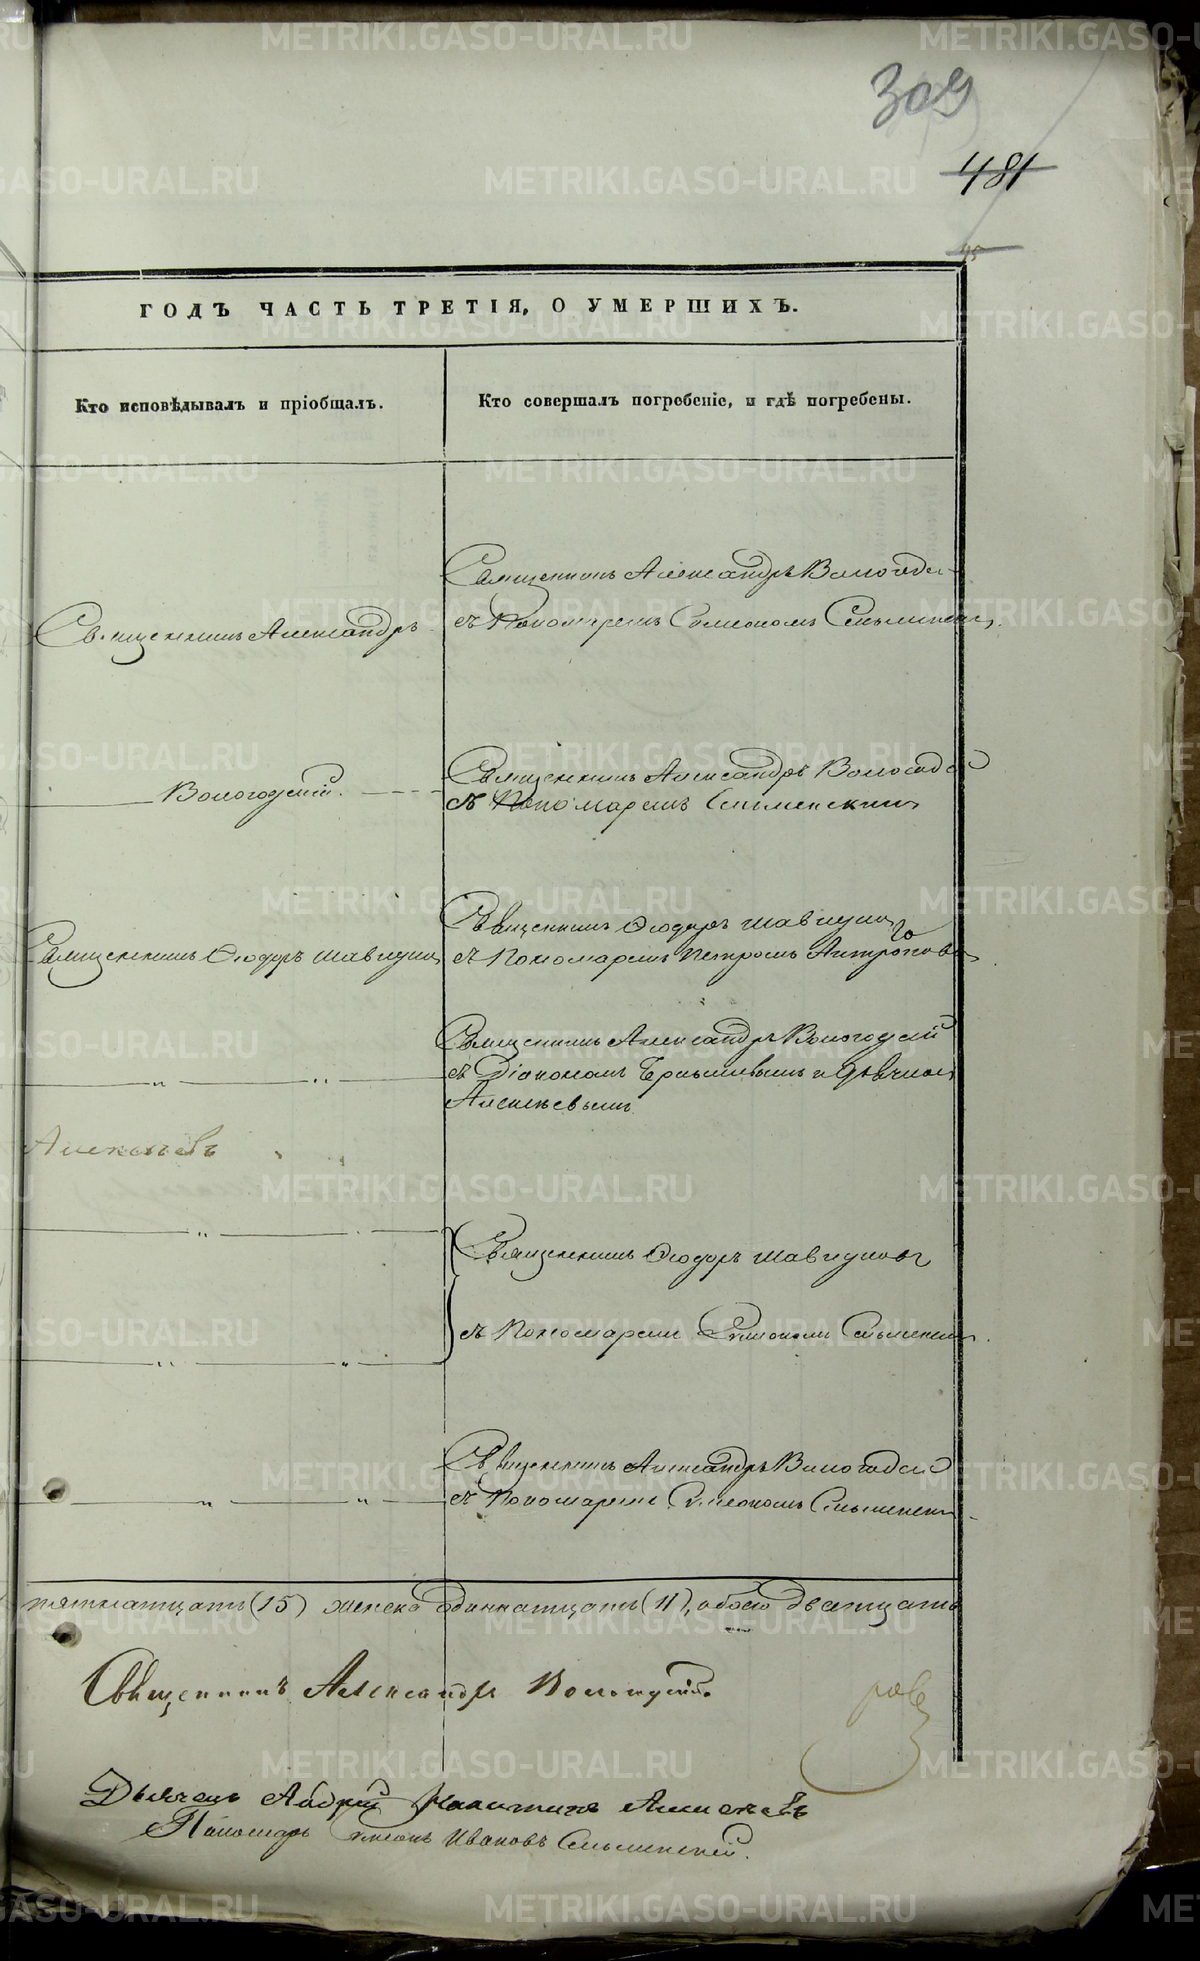 309
481
ГОДЪ ЧАСТЬ ТРЕТІЯ, О УМЕРШИХЪ.
Кто исповѣдывалъ и пріобщалъ.
Кто совершалъ погребеніе, и гдѣ погребены.
Священникъ Александръ
Вологодскій.
Священникъ Александръ Вологодскій
съ Пономаремъ Симеономъ
Священникъ Александръ Вологодскій
съ Пономаремъ
Священникъ Ѳеодоръ Шавкуновъ
Священникъ Ѳеодоръ Шавкуновъ
съ Пономаремъ Петромъ Антроповы
Священникъ Александръ Вологодскій
съ Діакономъ и Дьячкомъ
Алексѣевымъ
Алексѣевъ
Священникъ Ѳеодоръ Шавкуновъ
съ Пономаремъ Симеономъ
Священникъ Александръ Вологодскій
съ Пономаремъ Симеономъ
пятнатцать (15) женска одиннатцать (11), обоего дватцать
Священникъ Александръ Вологодскій.
Дьячекъ Андрей Алексѣевъ
Пономарь Симеонъ Ивановъ
METRIKI.GASO-URAL.RU